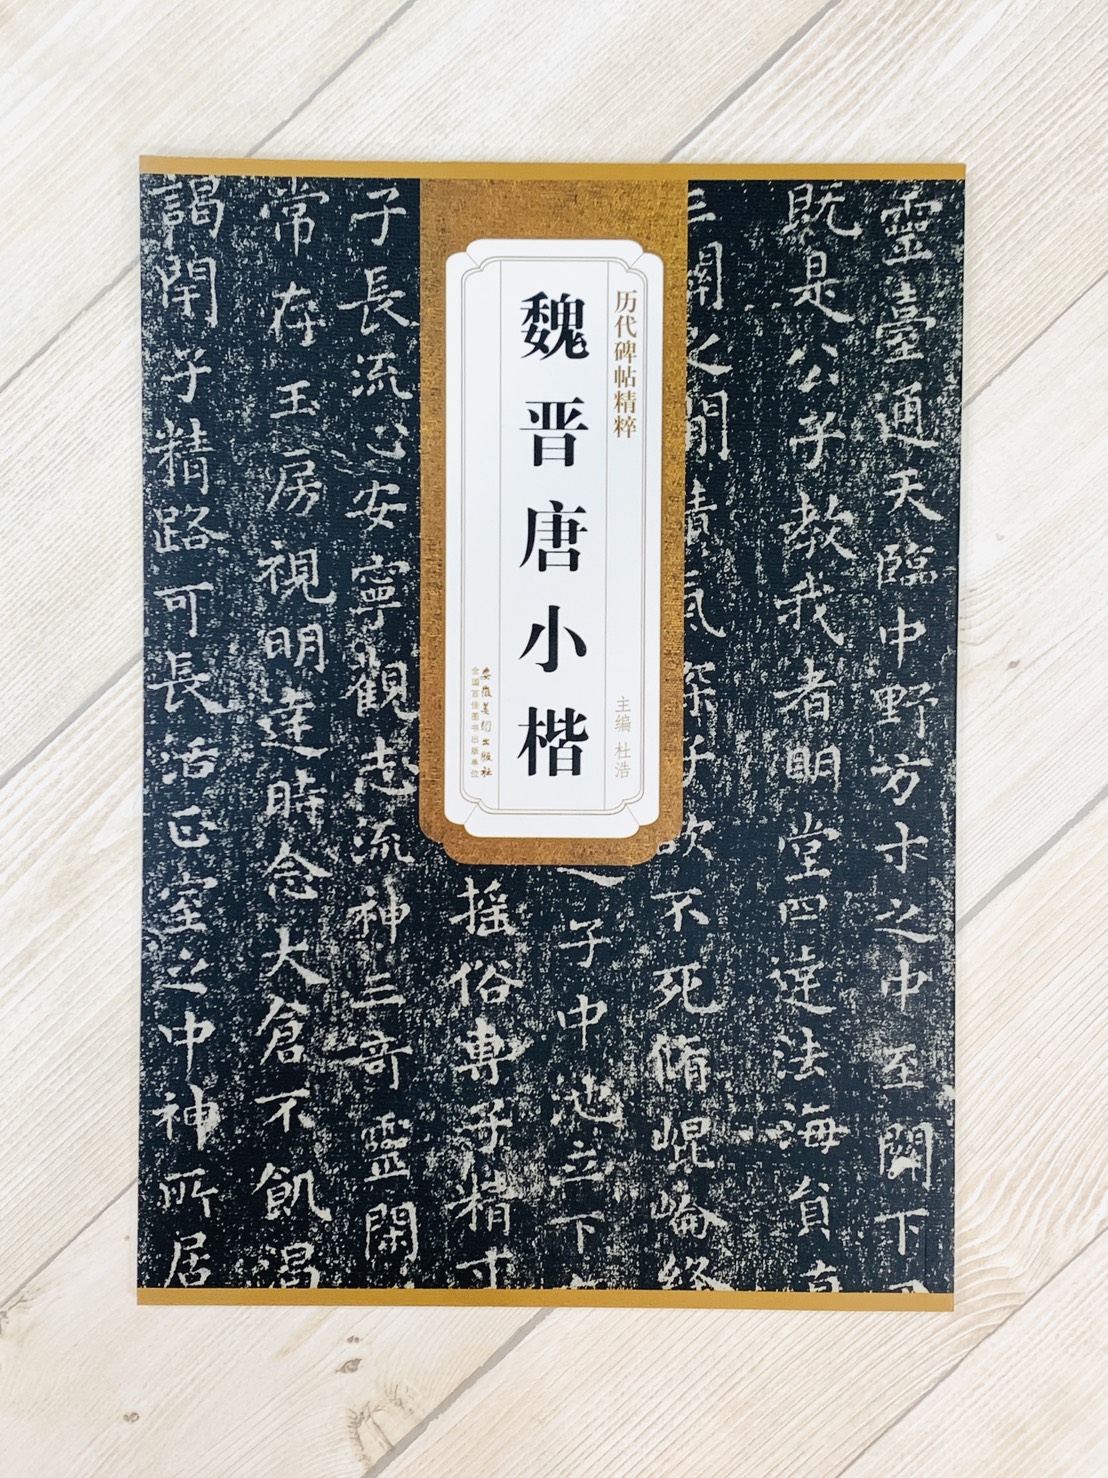 历代碑帖精粹
主编 杜浩
魏晋唐小楷
安徽美术出版社
全国百佳图书出版单位
靈臺通天臨中野方寸之中至關下
既是公子教我者明堂四達法海員真
三關之間精氣深子欲不死脩崐崘絡
之子中池立下
摇俗專子精寸
子長流心安寧觀志流神三奇靈閑
常在玉房視明達時念大倉不飢渴
謁閑子精路可長活正室之中神所居